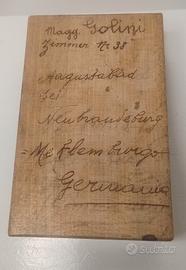 Magg. Golini
Zimmer N: 38
Augustabad
bei
Neubrandeburg
= Meklemburgo
Germania
subito